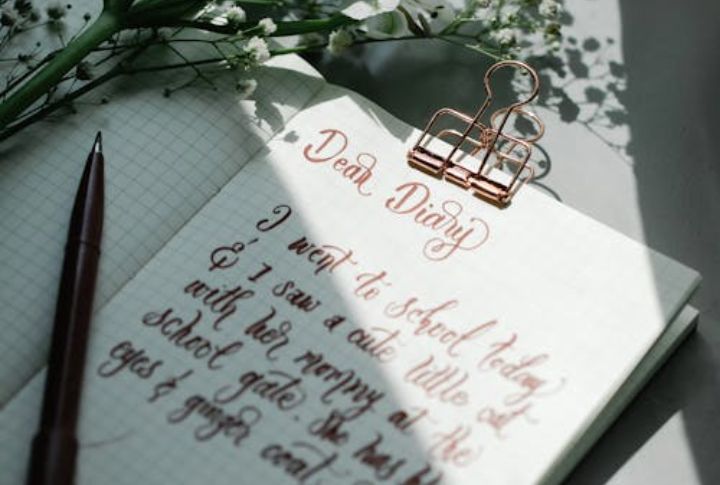 Dear Diary
I went to school today
& I saw a cute little cat
with her mommy at the
school gate. She has
eyes & ginger coat